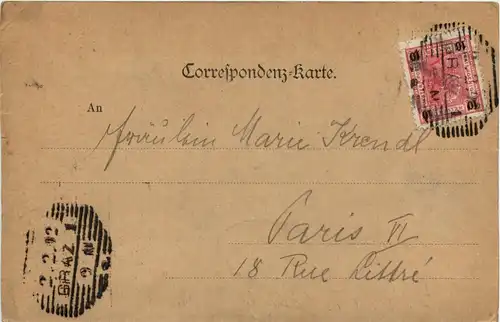 Correspondenz-Karte.
An
Fräulein Marie Krendl
Paris VI
18 Rue Littré
10
10
10
10
GRAZ 1